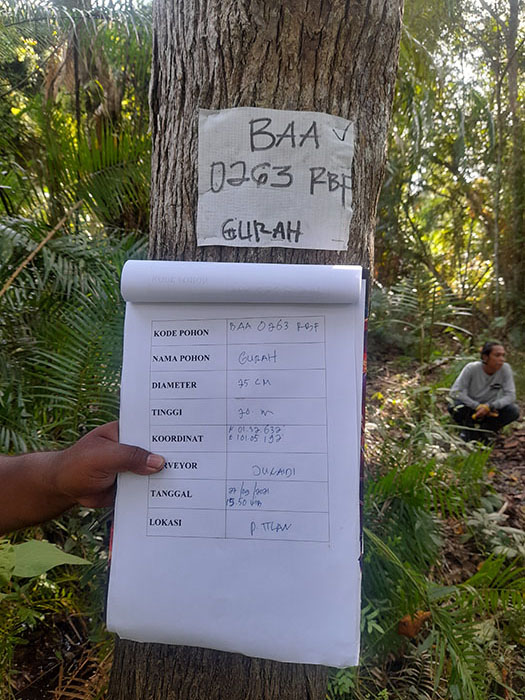 BAA
0263 RBF
GURAH
KODE POHON BAA 0263 RBF
NAMA POHON GURAH
DIAMETER 75 CM
TINGGI 20 m
KOORDINAT N 01.37 637
E 101.05 197
RVEYOR JUKADI
TANGGAL
15.50 WIB
LOKASI P. ITLAN